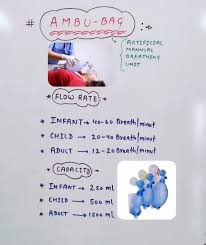 # AMBU-BAG
ARTIFICIAL
MANNUAL
BREATHING
UNIT
* FLOW RATE:
* INFANT → 40-60 Breath/minut
* CHILD → 20-40 Breath/minut
* ADULT → 12-20 Breath/minut
* CAPACITY
* INFANT → 250 ml
* CHILD → 500 ml
* ADULT → 1500 ml